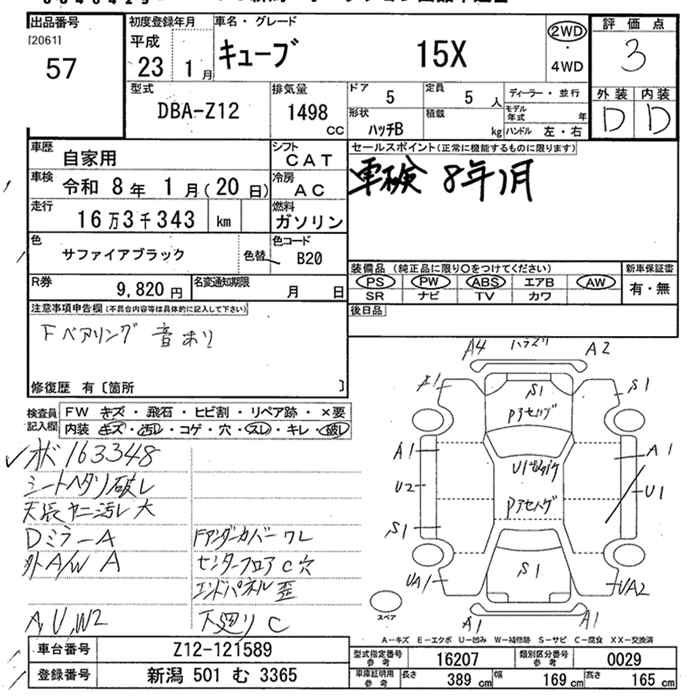 出品番号
[2061]
57
初度登録年月
平成
23 1月
車名・グレード
キューブ 15X
2WD
・
4WD
評価点
3
型式
DBA-Z12
排気量
1498
CC
ドア
5
定員
5 人
形状
ハッチB
積載
kg
ディーラー・並行
モデル年式 年
ハンドル 左・右
外装 内装
D D
車歴
自家用
シフト
CAT
車検
令和 8年 1月(20日)
冷房
AC
走行
16万3千343 km
燃料
ガソリン
色
サファイアブラック
色替
色コード
B20
R券
9,820円
名変通知期限
月 日
セールスポイント(正常に機能するものに限ります)
車検 8年1月
装備品 (純正品に限り○をつけてください)
PS PW ABS エアB AW
SR ナビ TV カワ
新車保証書
有・無
後日品
注意事項申告欄(不具合内容等は具体的に記入して下さい)
Fベアリング 音あり
修復歴 有〔箇所 〕
検査員記入欄
FW キズ・飛石・ヒビ割・リペア跡・×要
内装 キズ・汚レ・コゲ・穴・スレ・キレ・破レ
163348
シートヘタリ破レ
天張ヤニ汚レ大
DミラーA
外A/W A
A,U,W2
Fアンダーカバーワレ
センターフロアC穴
エンドパネル歪
下廻りC
A4
A2
S1
S1
Pアセハゲ
A1
U2
S1
UA1
A1
U1
UA2
Pアセハゲ
S1
A1
A1
スペア
A-キズ E-エクボ U-凹み W-補修跡 S-サビ C-腐食 XX-交換済
車台番号
Z12-121589
登録番号
新潟 501 む 3365
型式指定番号
参考
16207
類別区分番号
参考
0029
車庫証明用
参考
長さ 389 cm
幅 169 cm
高さ 165 cm